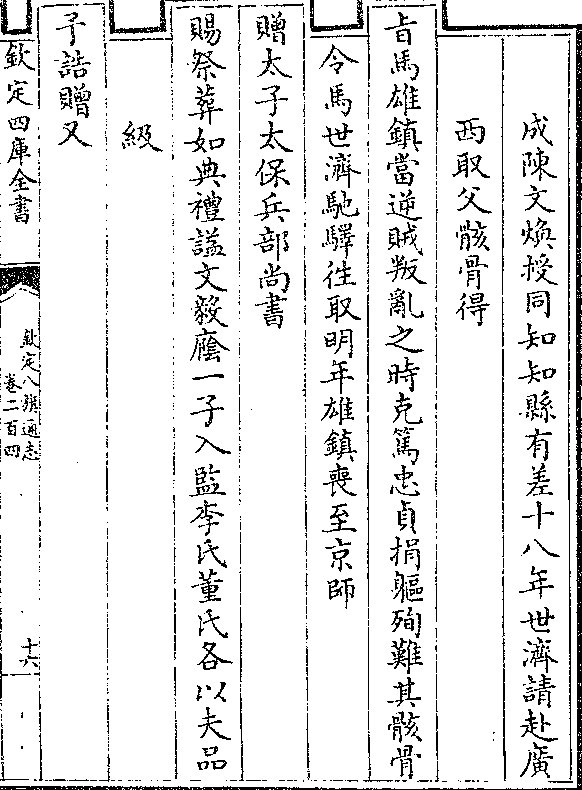 成陳文煥授同知知縣有差十八年世濟請赴廣
西取父骸骨得
㫖馬雄鎮當逆賊叛亂之時克篤忠貞捐軀殉難其骸骨
令馬世濟馳驛往取明年雄鎮喪至京師
贈太子太保兵部尚書
賜祭葬如典禮諡文毅廕一子入監李氏董氏各以夫品
級
予誥贈又
欽定四庫全書
欽定八旗通志
卷二百四
十六